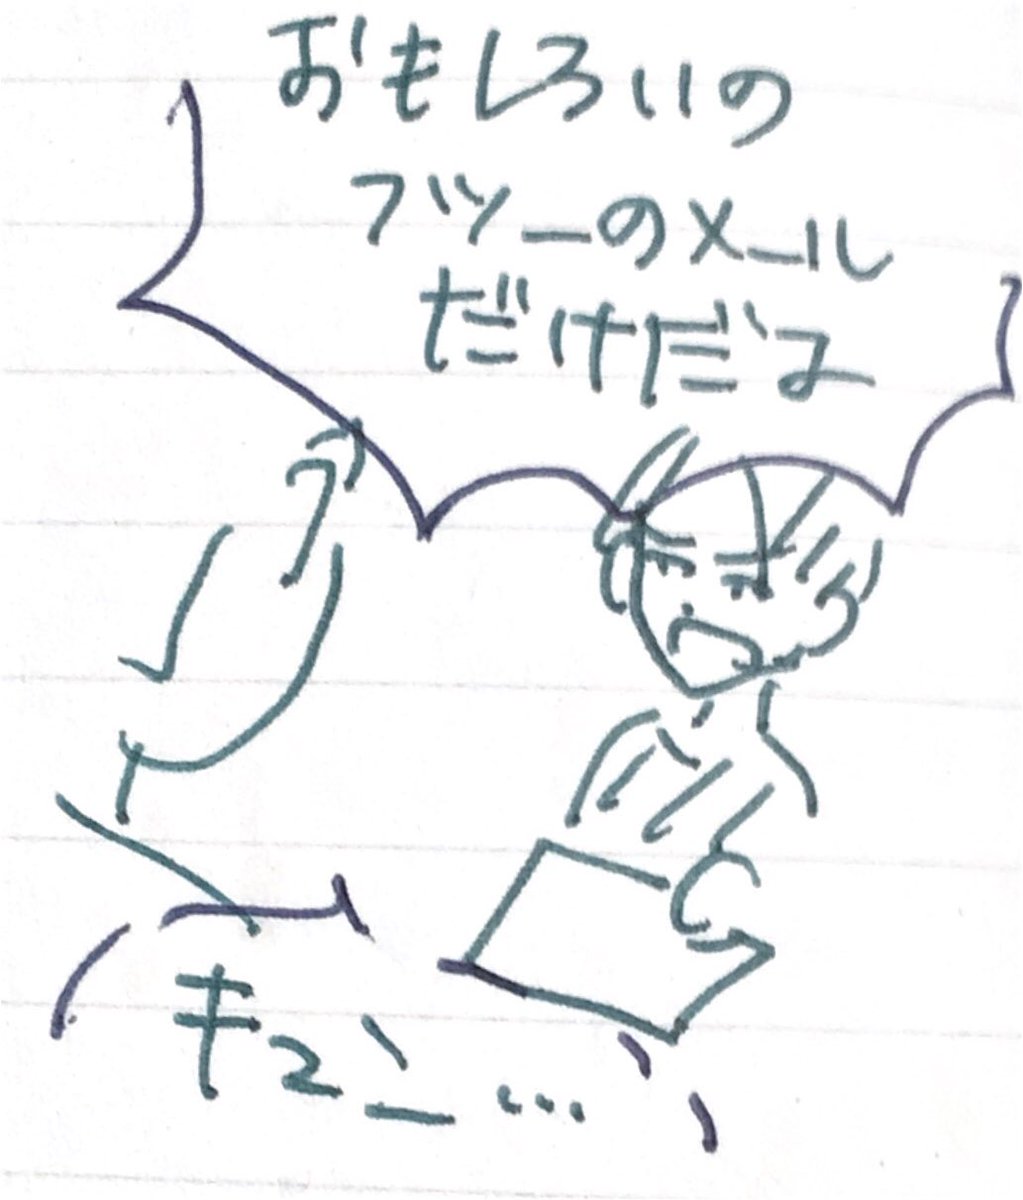 おもしろいの
フツーのメール
だけだよ
キュン…